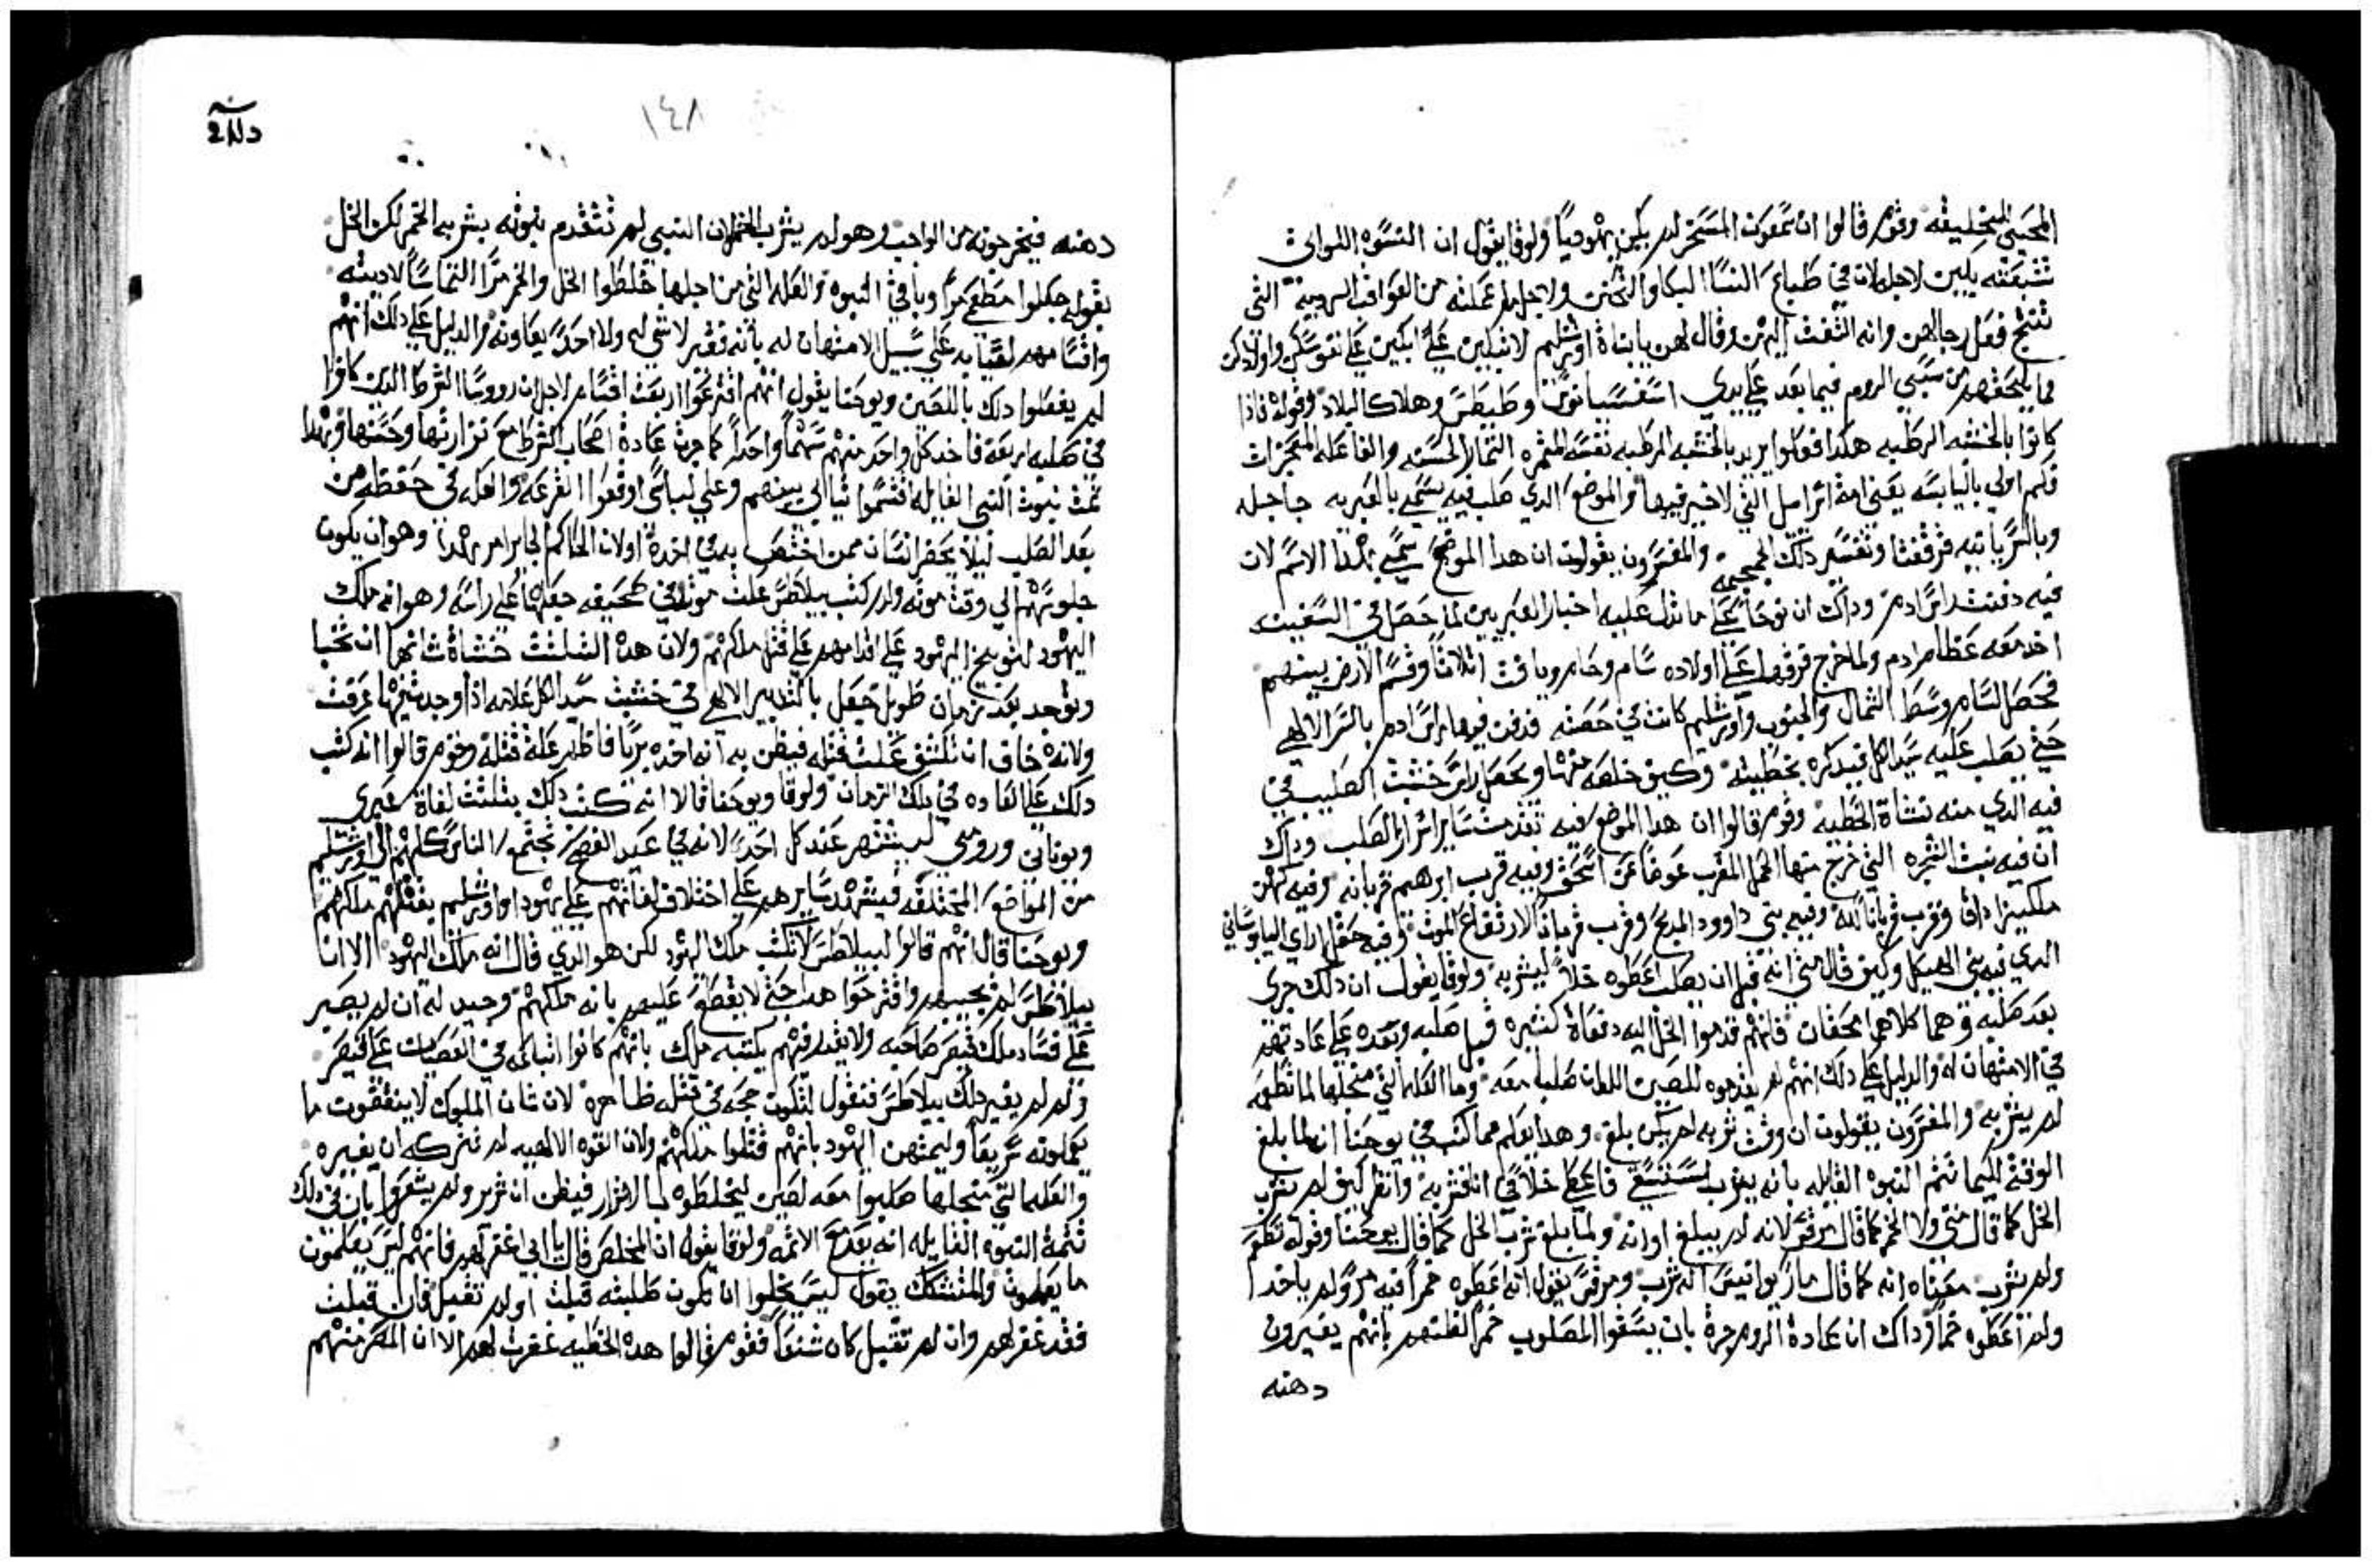 المحيي للخليقه وقوم قالوا ان سمعون المسخر لم يكن يهودياً ولوقا يقول ان النسوه اللواتي
تتبعنه يبكين لاجل لان في طباع النسا البكا والتحنن ولاجل ما عملنه من العواقب الرديه التي
تنتج فعل رجالهن وانه التفت اليهن وقال لهن يا بناة اورشليم لا تبكين علي ابكين علي نفوسكن واولادكن
مما يلحقهم من سبي الروم فيما بعد علي يدي اسفسيانوس وطيطس وهلاك البلاد وقوله فاذا
كانوا بالخشبه الرطبه هكدا فعلوا يريد بالخشبه الرطبه نفسه المثمره الثمار الحسنه والفاعله المعجزات
فكم اولي باليابسه يعني امة اسراييل التي لا خير فيها والموضع الدي صلب فيه يسمي بالعبريه جاجله
وبالسريانيه قرقفتا وتفسير دلك الجمجمه والمفسرون يقولون ان هدا الموضع سمي بهدا الاسم لان
فيه دفنت راس ادم وداك ان نوحاً علي ما تدل عليه اخبار العبريين لما حصل في السفينه
اخد معه عظام ادم ولما خرج فرقها علي اولاده سام وحام ويافت اتلاثاً وقسم الارض بينهم
فحصل لسام وسط الشمال والجنوب واورشليم كانت في حصته فدفن فيها راس ادم بالسر الالهي
حتي يصلب عليه سيد الكل فيدكره بخطيته وكيف خلصه منها وتحصل راس خشبت الصليب في
فيه الدي منه نشاة الخطيه وقوم قالوا ان هدا الموضع فيه تقدمت ساير اسرار الصلب وداك
ان فيه نبت الشجره التي خرج منها الحمل المقرب عوضاً عن اسحق وفيه قرب ابرهيم قربانه وفيه كهن
ملكيزاداق وقرب قرباناً لله وفيه بني داوود المدبح وقرب قرباناً لارتفاع الموت وفيه حقل اراي اليابوساني
الدي فيه بني الهيكل وكيف قال متي انه قبل ان يصلب اعطوه خلاً ليشربه ولوقا يقول ان دلك جري
بعد صلبه وهما كلاهما محقان فانهم قدموا الخل اليه دفعاة كتيره قبل صلبه وبعده علي عادتهم
في الامتهان له والدليل علي دلك انهم لم يقدموه للصين اللدان صلبا معه وما العله التي من اجلها لما تطعمه
لم يشربه والمفسرون يقولون ان وقت شربه لم يكن بلغ وهدا يعلم مما كتب في يوحنا انه لما بلغ
الوقت لكيما تتم النبوه القايله بانه يشرب استسقي فاعطي خلاً في انا فشربه وانظر كيف لم يشرب
الخل كما قال متي ولا الخمر كما قال مرقس لانه لم يبلغ اوانه ولما بلغ شرب الخل كما قال يوحنا وقوله تطعم
ولم يشرب معناه انه كما قال ماريوانيس انه شرب ومرقس يقول انه اعطوه خمراً فيه مر ولم ياخد
ولم اعطوه خمراً وداك ان عادة الروم جرة بان يسقوا المصلوب خمراً لظنهم بانهم يغيرون
دهنه
١٤٨
دهنه فيخرجونه من الواجب وهو لم يشرب الخمر لان النبي لم تتقدم نبوته بشربه الخمر لكن الخل
بقوله جعلوا مطعمي مراً وباقي النبوه والعله التي من اجلها خلطوا الخل والخمر مراً التماساً لاديته
واقسامهم لقياه علي سبيل الامتهان له بانه فقير لا شي له ولا احد يعاونه والدليل علي دلك انهم
لم يفعلوا دلك باللصين ويوحنا يقول انهم اقترعوا اربعت اقسام لاجل ان رووسا الشرط الدين كانوا
في صلبه اربعه فاخد كل واحد منهم سهماً واحداً كما جرت عادة اصحاب الشرط مع نزارتها وخستها وبهدا
تمت نبوت النبي القايله اقتسموا ثيابي بينهم وعلي لباسي اوقعوا القرعه والعله في حفظه من
بعد الصلب ليلا يحضر انسان ممن اختص بهم في اخده اولان الحاكم لجاير امر بهدا وهو ان يكون
جلوسهم الي وقت موته ولم كتب بيلاطس علت موته في صحيفه جعلها علي راسه وهو انه ملك
اليهود لتوبيخ اليهود علي اقدامهم علي قتل ملكهم ولان هده الثلثت خشباة شانها ان تخبا
وتوجد بعد زمان طويل جعل بالتدبير الالهي في خشبت سيد الكل علامه ادا وجدت بها عرفت
ولانه خاف ان تكشف علت قتله فيظن به انه اخده بريا فاظهر علة قتله وقوم قالوا انه كتب
دلك علي العاده في دلك الزمان ولوقا ويوحنا قالا انه كتب دلك بتلتت لغاة عبري
ويوناني ورومي ليشتهر عند كل احد لانه في عيد الفصح تجتمع الناس كلهم الي اورشليم
من المواضع المختلفه فيشهد سايرهم علي اختلاف لغاتهم علي يهودا واورشليم بقتلهم ملكهم
ويوحنا قال انهم قالوا لبيلاطس لا تكتب ملك اليهود لكن هو الدي قال انه ملك اليهود الا ان
بيلاطس لم يجيبهم واقترحوا هدا حتي لا يقطع عليهم بانه ملكهم وحيد له ان لم يصير
علي فساد ملك قيصر صاحبه ولا يقدر فهم بكتبه ملك بانهم كانوا اتباعه في العصيان علي قيصر
ولم لم يغير دلك بيلاطس فنقول لتكون حجه في قتله ظاهره لان شان الملوك لا ينقضون ما
يعملونه سريعاً وليمتهن اليهود بانهم قتلوا ملكهم ولان القوه الالهيه لم تتركه ان يغيره
والعله التي من اجلها صلبوا معه لصين ليخلطوه بالاشرار فيظن انه شرير ولم يشعروا بان في دلك
تتمة النبوه القايله انه يعد مع الاتمه ولوقا يقول ان المخلص قال يا ابي اغفر لهم فانهم ليس يعلمون
ما يعملون والمتشكك يقول ليس يخلوا ان تكون طلبته قبلت اولم تقبل فان قبلت
فقد غفر لهم وان لم تقبل كان شنعاً فقوم قالوا هده الخطيه غفرت لهم الا ان المصر منهم